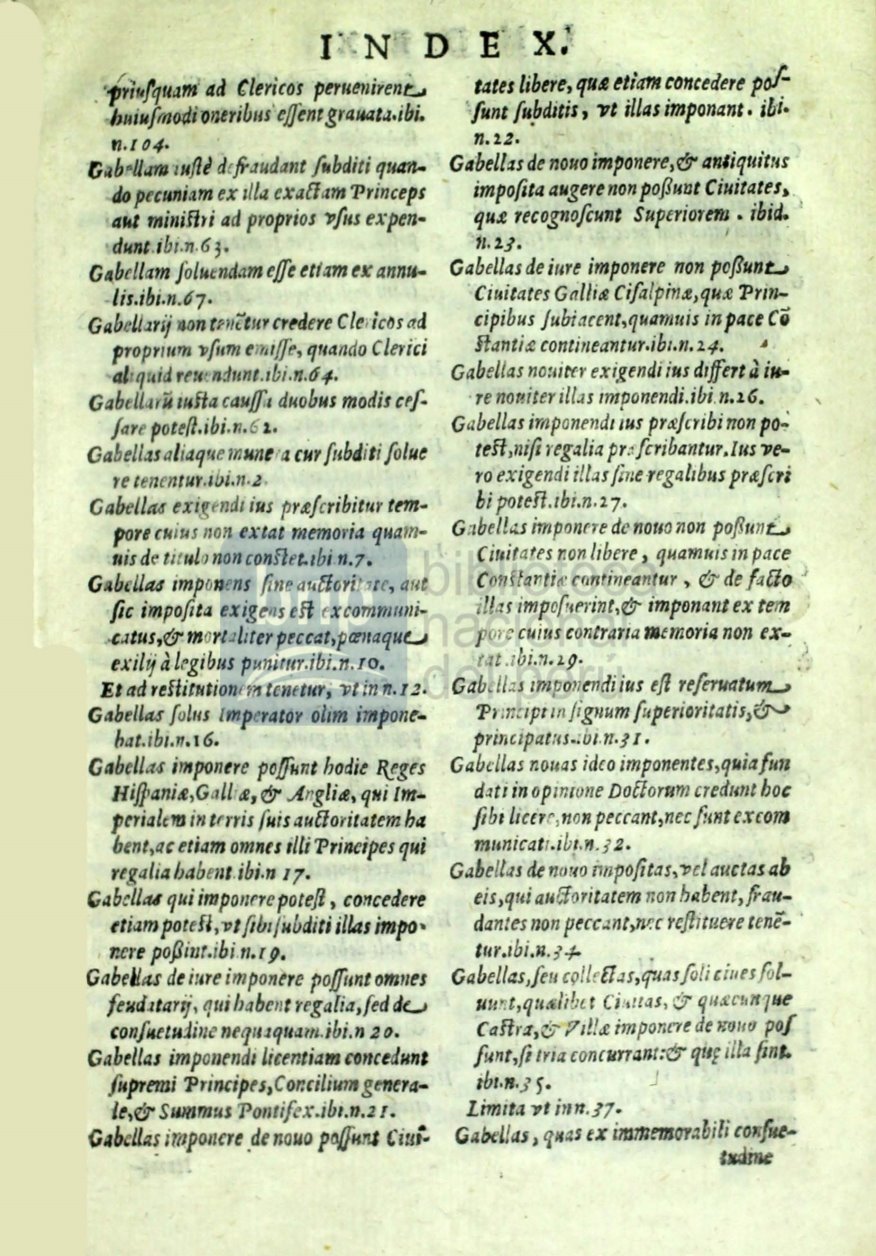 INDEX.
priuſquam ad Clericos peruenirent
huiuſmodi oneribus eſſent grauata.ibi.
n.104.
Gabellam iuſtè defraudant ſubditi quan-
do pecuniam ex illa exactam Princeps
aut miniſtri ad proprios vſus expen-
dunt.ibi.n.63.
Gabellam ſoluendam eſſe etiam ex annu-
lis.ibi.n.67.
Gabellarij non tenētur credere Clericos ad
proprium vſum emiſſe, quando Clerici
aliquid reuendunt.ibi.n.64.
Gabellarū iuſta cauſſa duobus modis ceſ-
ſare poteſt.ibi.n.62.
Gabellas aliaque munera cur ſubditi ſolue
re tenentur.ibi.n.2
Gabellas exigendi ius præſcribitur tem-
pore cuius non extat memoria quam-
uis de titulo non conſtet.ibi n.7.
Gabellas imponens ſine auctoritate, aut
ſic impoſita exigens eſt excommuni-
catus,& mortaliter peccat,pœnaque
exilij à legibus punitur.ibi.n.10.
Et ad reſtitutionem tenetur, vt in n.12.
Gabellas ſolus Imperator olim impone-
bat.ibi.n.16.
Gabellas imponere poſſunt hodie Reges
Hiſpaniæ,Galliæ,& Angliæ, qui Im-
perialem in terris ſuis auctoritatem ha
bent,ac etiam omnes illi Principes qui
regalia habent.ibi.n 17.
Gabellas qui imponere poteſt, concedere
etiam poteſt,vt ſibi ſubditi illas impo-
nere poßint.ibi n.19.
Gabellas de iure imponere poſſunt omnes
feudatarij, qui habent regalia,ſed de
conſuetudine nequaquam.ibi.n 20.
Gabellas imponendi licentiam concedunt
ſupremi Principes,Concilium genera-
le,& Summus Pontifex.ibi.n.21.
Gabellas imponere de nouo poſſunt Ciui-
tates libere, quæ etiam concedere poſ-
ſunt ſubditis, vt illas imponant. ibi.
n.22.
Gabellas de nouo imponere,& antiquitus
impoſita augere non poßunt Ciuitates,
quæ recognoſcunt Superiorem. ibid.
n.23.
Gabellas de iure imponere non poßunt
Ciuitates Galliæ Ciſalpinæ,quæ Prin-
cipibus ſubiacent,quamuis in pace Cō
ſtantiæ contineantur.ibi.n.24.
Gabellas nouiter exigendi ius differt à iu-
re nouiter illas imponendi.ibi n.26.
Gabellas imponendi ius præſcribi non po-
teſt,niſi regalia præſcribantur.Ius ve-
ro exigendi illas ſine regalibus præſcri
bi poteſt.ibi.n.27.
Gabellas imponere de nouo non poßunt
Ciuitates non libere, quamuis in pace
Conſtantiæ contineantur, & de facto
illas impoſuerint,& imponant ex tem
pore cuius contraria memoria non ex-
tat.ibi.n.29.
Gabellas imponendi ius eſt reſeruatum
Principi in ſignum ſuperioritatis,&
principatus.ibi.n.31.
Gabellas nouas ideo imponentes,quia fun
dati in opinione Doctorum credunt hoc
ſibi licere,non peccant,nec ſunt excom
municati.ibi.n.32.
Gabellas de nouo impoſitas,vel auctas ab
eis,qui auctoritatem non habent,frau-
dantes non peccant,nec reſtituere tenē-
tur.ibi.n.34.
Gabellas,ſeu collectas,quas ſoli ciues ſol-
uunt,quælibet Ciuitas, & quæcunque
Caſtra,& Villæ imponere de nouo poſ
ſunt,ſi tria concurrant:& quę illa ſint.
ibi.n.35.
Limita vt in n.37.
Gabellas, quas ex immemorabili conſue-
tudine